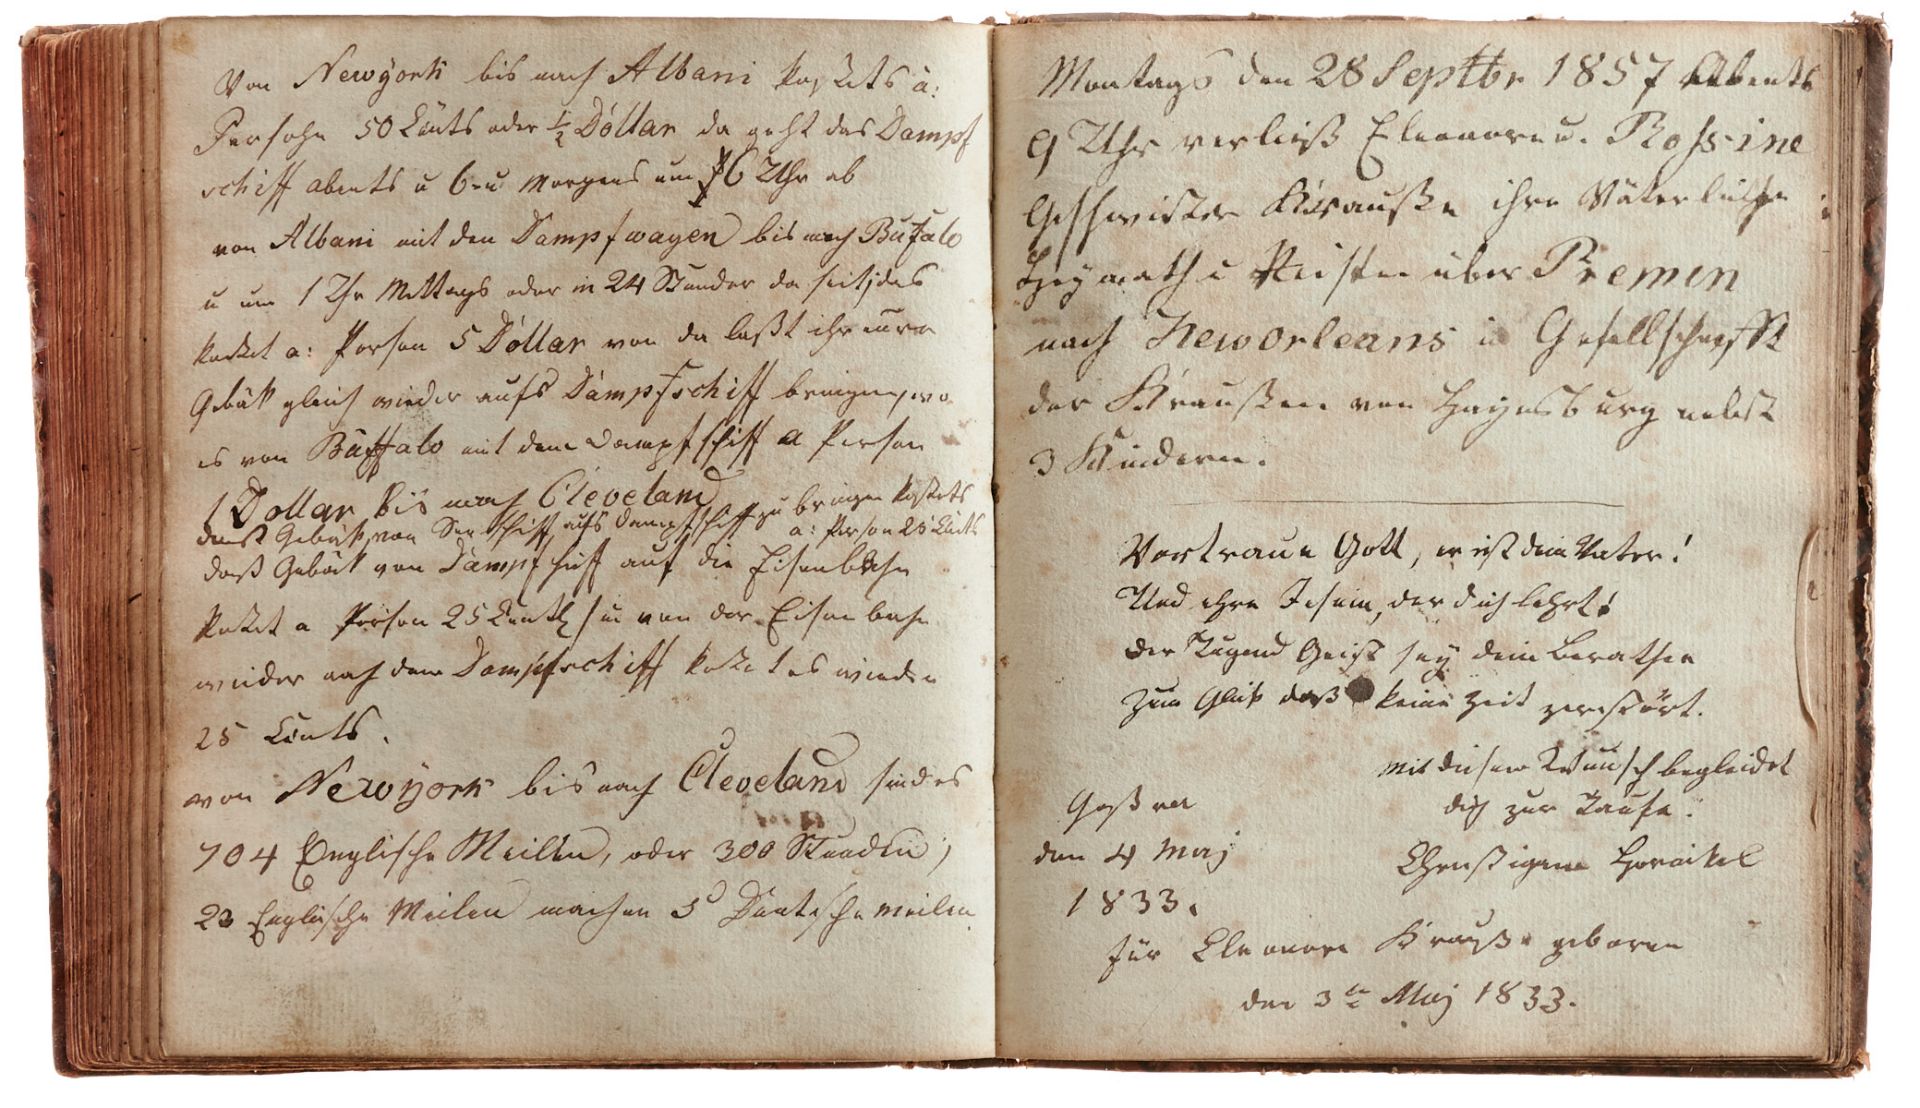 Von Newyork bis nach Albani kostets a:
Persohn 50 Cents oder ½ Dollar da geht das Dampf
schiff abents u 6 u Morgens um 6 Uhr ab
von Albani mit den Dampfwagen bis nach Bufalo
u um 1 Uhr Mittags oder in 24 Stunden da seit, das
kostet a: Person 5 Dollar von da laßt ihr eure
Gebäk gleich wieder aufs Dampfschiff bringen, wo
es von Buffalo mit dem Dampfschiff a Person
1 Dollar bis nach Cleveland
das Gebäk, von See schiff, aufs Dampfschiff zu bringen kostets
a: Person 25 Cents
daß Gebäk von Dampfschiff auf die Eisenbahn
kostet a Person 25 Cents u von der Eisenbahn
wieder nach dem Dampfschiff kostet es wieder
25 Cents.
von Newyork bis nach Cleveland sind es
704 Englische Meilen, oder 300 Stunden,
23 Englische Meilen machen 5 Deutsche meilen
Montags den 28 Septbr 1857 Abents
9 Uhr verließ Eleonore u. Rossine
Geschwister Krauße ihre Väterliche
Heymath u Reisten über Premen
nach Neworleans in Gesellschafft
der Kraußen von Haynsburg nebst
3 Kindern.
Vertraue Gott, er ist dein Vater!
Und ehre Jesum, der dich lehrt!
der Tugend Geist sey dein Berather
Zum Glük daß keine Zeit zerstört.
Mit diesen Wunsch begleidet
dich zur Taufe.
Goßra
den 4 Maj
1833.
Horäkel
für Eleonore Krauße geboren
den 3 te Maj 1833.